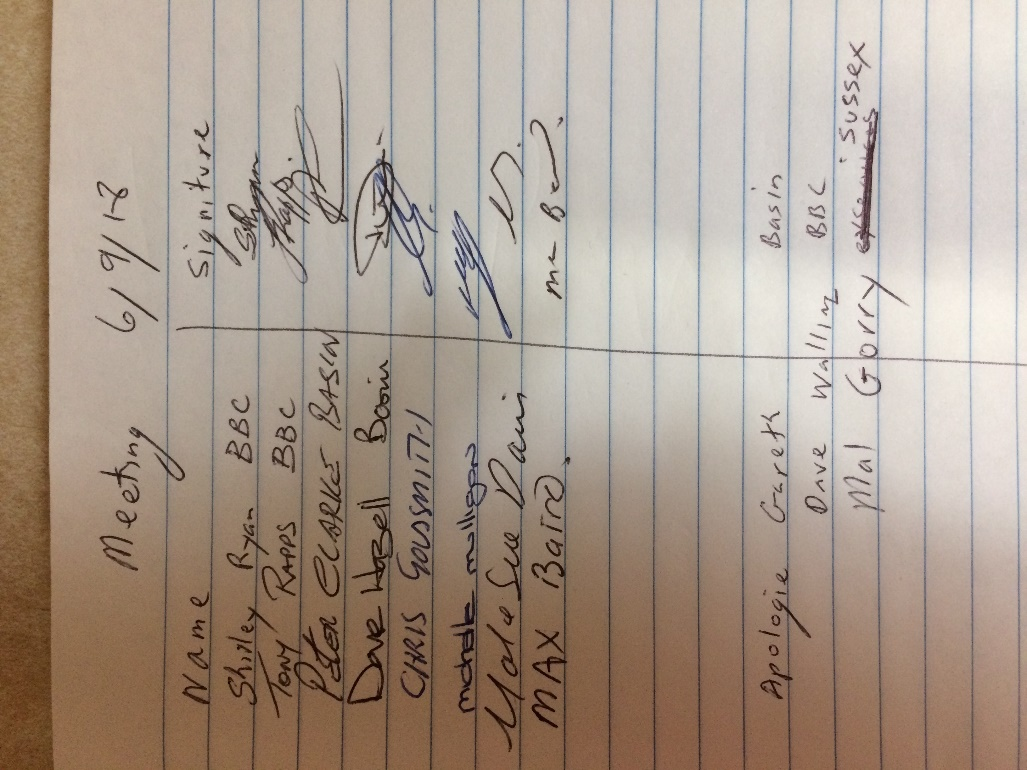 Meeting 6/9/18
Name Signiture
Shirley Ryan BBC SRyan
Tony RAPPS BBC TRapps.
Peter CLARKE BASIN
Dave Hazell Basin
CHRIS GOLDSMITH
michelle mulligan
Sue Davis
MAX Baird.
Apologie Gareth Basin
Dave Walling BBC
Mal Gorry Sussex